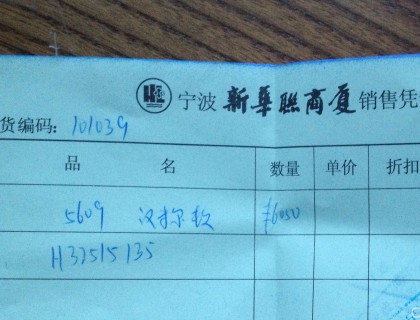 宁波 新华联商厦 销售凭
货编码: 101039
品 名 数量 单价 折扣
5609 汉米尔顿 ¥6050
H32515135